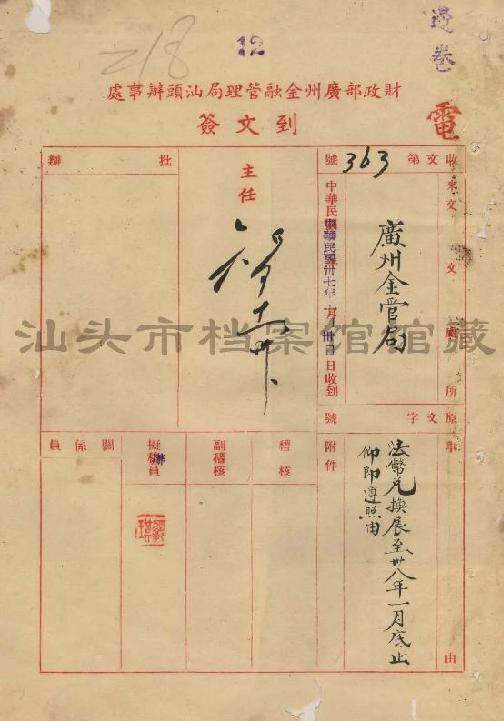 218
12
還卷
財政部廣州金融管理局汕頭辦事處
電
到文簽
收文第363號
來文處所
廣州金管局
中華民國
中華民國卅七年
月
日收到
主任
批辦
原文字號
事由
法幣兌換展至卅八年一月底止
仰即遵照由
附件
稽核
副稽核
擬辦員
關係員
汕头市档案馆馆藏